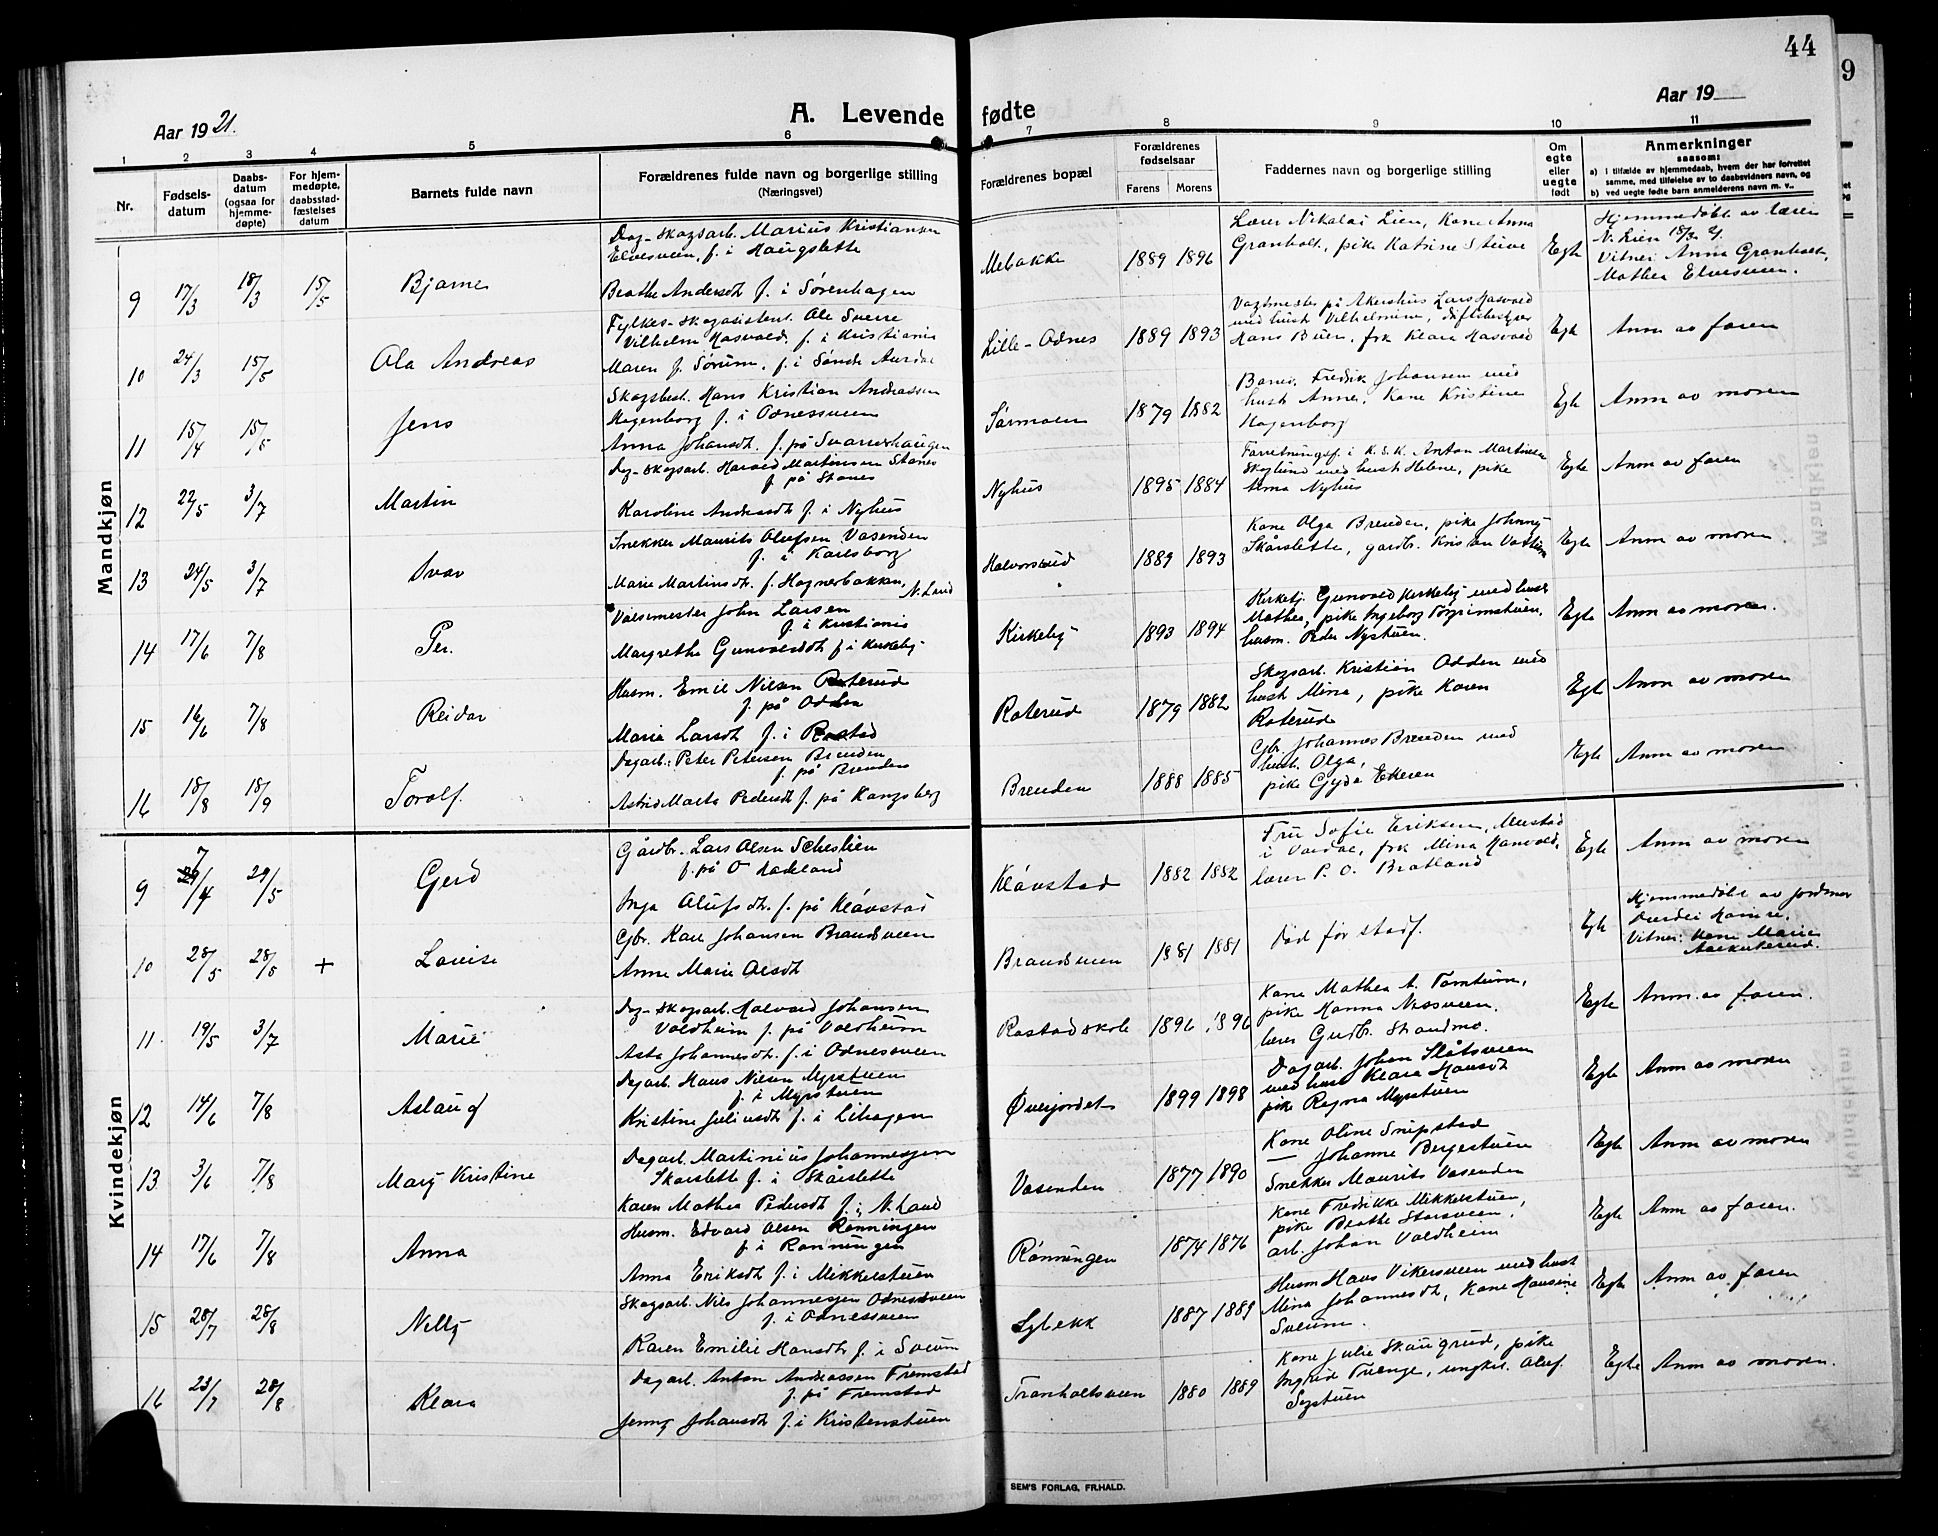 44
9
Aar 1921.
A. Levende fødte
Aar 19
1 2 3 4 5 6 7 8 9 10 11
Nr.
Fødselsdatum
Daabsdatum (ogsaa for hjemmedøpte)
For hjemmedøpte, daabsstadfæstelses datum
Barnets fulde navn
Forældrenes fulde navn og borgerlige stilling
(Næringsvei)
Forældrenes bopæl
Forældrenes fødselsaar
Farens Morens
Faddernes navn og borgerlige stilling
Om egte eller uegte født
Anmerkninger
saasom:
a) i tilfælde av hjemmedaab, hvem der har forrettet samme, med tilføielse av to daabsvidners navn, og
b) ved uegte fødte barn anmelderens navn m. v..
Mandkjøn
Dag-Skogsarb. Marius Kristiansen
Elvesveen, f. i Haugslette
9 17/3 18/3 15/5 Bjarne
Beathe Andersdt f. i Sørenhagen
Mebakke 1889 1896
Lærer Nikolai Lien, Kone Anna
Granholt, pike Katrine
Egte
Hjemmedøbt av lærer
N. Lien 18/3 21.
Vitner: Anna Granholt,
Mathea Elvesveen.
Fylkes-skogasistent. Ole Sverre
Vilhelm Hasvold, f. i Kristiania
10 24/3 15/5 Ola Andreas
Maren f. Sørum, f. i Søndre Aurdal
Lille-Odnes 1889 1893
Vagtmester på Akershus Lars Hasvold
med hust Vilhelmine,
Hans Buen, frk Klara Hasvold
Egte Anm av faren
Skogsbest. Hans Kristian Andreassen
Hagenborg f. i Odnessveen
11 15/4 15/5 Jens
Anna Johansdt. f. på Svarverhaugen
Sørmoen 1879 1882
Fredrik Johansen med
hust Anne, Kone Kristine
Hagenborg
Egte Anm av moren
Dag-skogsarb. Harald Martinsen Stanes
f. på Stanes
12 22/5 3/7 Martin
Karoline Andersdt f. i Nyhus
Nyhus 1895 1884
Forretningsf. i K.S.K. Anton Martinsen
Skoglund med hust Helene, pike
Alma Nyhus
Egte Anm av faren
Snekker Maurits Olufsen Vasenden
f. i Karlsborg
13 24/5 3/7 Ivar
Marie Martinsdt. f. Hagnerbakken, N. Land
Halvorsrud 1889 1893
Kone Olga Brenden, pike Johnny
Skårslette, gardb. Kristian
Egte Anm av moren
Valsemester John Larsen
f. i Kristiania
14 17/6 7/8 Per.
Margrethe Gunvaldsdt f. i Kirkeby
Kirkeby 1893 1894
Kirketj. Gunvald Kirkeby med hust
Mathea, pike Ingeborg Torgrimstuen,
husm. Peder Nystuen.
Egte Anm av moren.
Husm. Emil Nilsen Roterud
f. på Odden
15 16/6 7/8 Reidar
Marie Larsdt f. i Rostad
Roterud 1879 1882
Skogsarb. Kristian Odden med
hust Mina, pike Karen
Roterud
Egte Anm av moren
Dagarb. Peter Petersen Brenden
f. på Brenden
16 18/8 18/9 Toralf.
Astrid Marta Pedersdt f. på Kongsberg
Brenden 1888 1885
Gbr. Johannes Brenden med
hust. Olga,
pike Gyda Ekeren
Egte Anm av moren
Kvindekjøn
Gårdbr. Lars Olsen Schestien
f. på
9 7/4 29/5 Gerd
Inga Olufsdt. f. på Klåvstad
Klåvstad 1882 1882
Fru Sofie Eriksen, Mustad
i Vardal, frk Mina Hasvold,
lærer P. O. Bratland
Egte Anm av moren
Gbr. Karl Johansen Brandsveen
10 28/5 28/5 + Lovise
Anne Marie Olsdt
Brandsveen 1881 1881
Død før stadf.
Egte
Hjemmedøbt av jordmor
Vitner: Lene Marie
Dag-skogsarb. Halvard Johansen
Voldheim f. på Voldheim
11 19/5 3/7 Marie
Asta Johannesdt. f. i Odnessveen
Rostad skole 1896 1896
Kone Mathea A. Tomtum,
pike Hanna Nessveen.
lærer Gudbr. Strandmo.
Egte Anm. av faren.
Dagarb. Hans Nilsen Myrstuen
f. i Myrstuen
12 14/6 7/8 Aslaug
Kristine Juliusdt f. i Lihagen
Øverjordet 1899 1898
Dagarb. Johan Slåtsveen
med hust Klara Hansdt
pike Ragna Myrstuen
Egte Anm av moren
Dagarb. Martinius Johannessen
Skårslette f. i Skårslette
13 3/6 7/8 Mary Kristine
Karen Mathea Pedersdt f. i N. Land
Vasenden 1877 1890
Kone Oline Snipstad
— Johanne Bergestuen
Snekker Maurits Vasenden
Egte Anm av moren
Husm. Edvard Olsen Rønningen
f. i Rønningen
14 17/6 7/8 Anna
Anna Eriksdt f. i Mikkelstuen
Rønningen 1874 1876
Kone Fredrikke Mikkelstuen,
pike Beathe Storsveen,
arb. Johan Voldheim
Egte Anm av faren.
Skogsarb. Nils Johannessen Odnessveen
f. i Odnessveen
15 28/7 28/8 Nelly
Karen Emilie Hansdt f. i Sveum
Lybekk 1887 1889
Husm Hans Vikersveen med hust
Mina Johannesdt, Kone Hansine
Sveum.
Egte Anm av faren
Dagarb. Anton Andreassen Fremstad
f. på Fremstad
16 23/7 28/8 Klara
Jenny Johansdt f. i Kristenstuen
Tranholtsveen 1880 1889
Kone Julie Skaugrud, pike
Ingrid Tuenge, ungkl. Oluf
Sagstuen
Egte Anm av moren.
SEM'S FORLAG, FR.HALD.